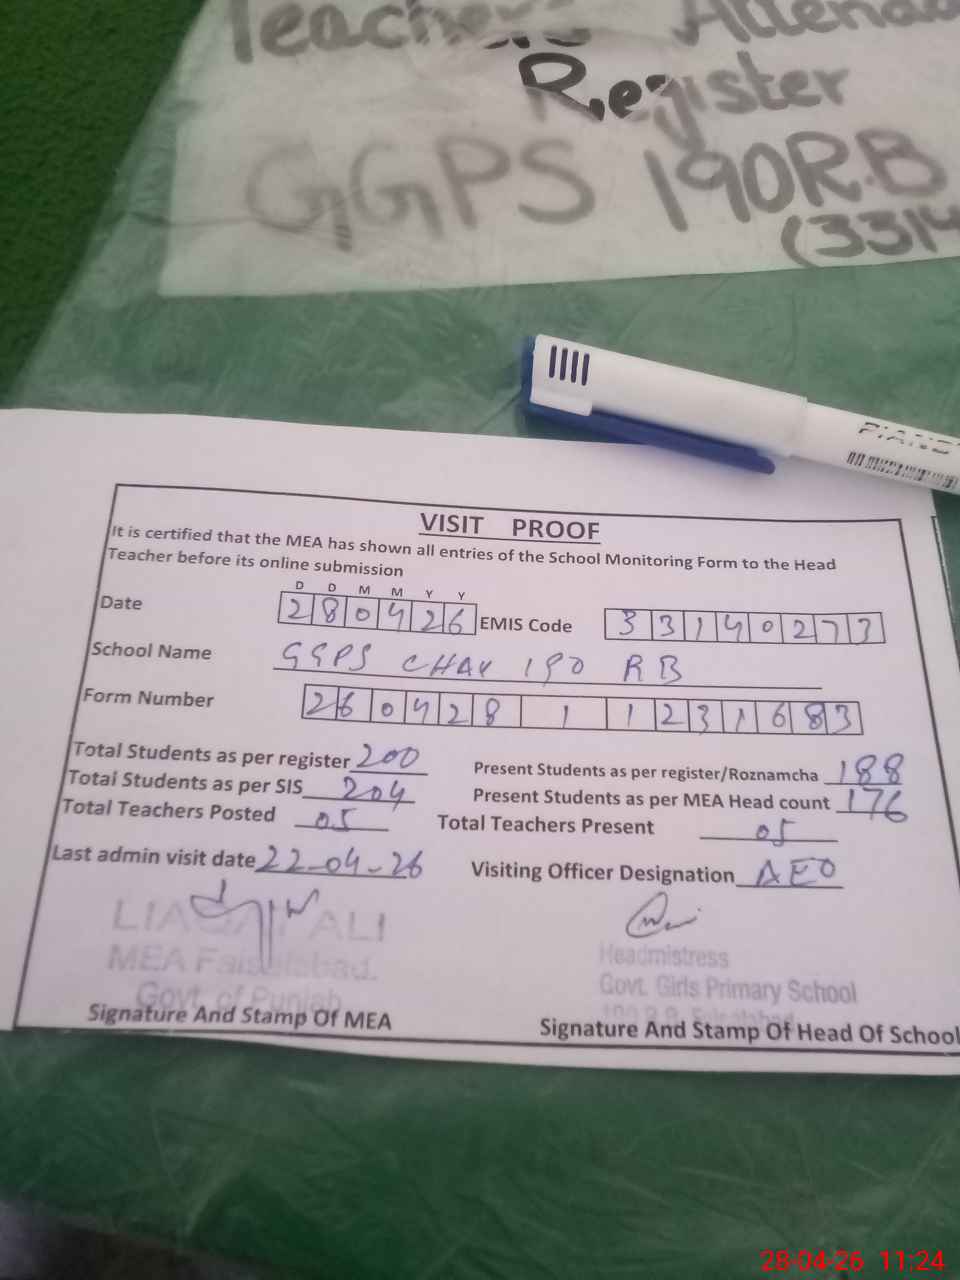 Teachers Attenda
Register
GGPS 190R.B
(3314
PIANO
VISIT PROOF
It is certified that the MEA has shown all entries of the School Monitoring Form to the Head
Teacher before its online submission
D D M M Y Y
Date 280426 EMIS Code 33140273
School Name GGPS CHAK 190 RB
Form Number 260428 1 1231683
Total Students as per register 200 Present Students as per register/Roznamcha 188
Total Students as per SIS 204 Present Students as per MEA Head count 176
Total Teachers Posted 05 Total Teachers Present 05
Last admin visit date 22-04-26 Visiting Officer Designation AEO
LIAQAT ALI
MEA Faisalabad.
Govt. of Punjab
Signature And Stamp Of MEA
Headmistress
Govt. Girls Primary School
190 R.B. Faisalabad
Signature And Stamp Of Head Of School
28-04-26 11:24